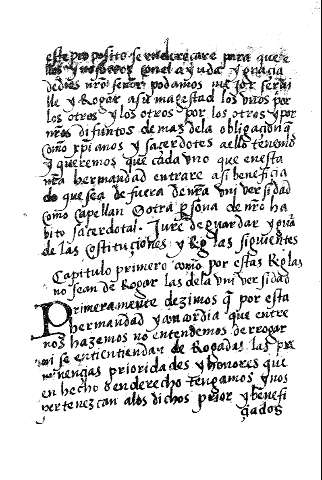 este proposito se endereçare para que e
llos y nosotros con el ayuda y gracia
de dios nr̃o señor podamos mejor servi
lle y Rogar a su magestad los vnos por
los otros y los otros por los otros y por
nr̃os difuntos demas dela obligacion q̃
como xp̃ianos y sacerdotes a ello tenemos
y queremos que cada vno que en esta
nr̃a hermandad entrare asi beneficia
do que sea de fuera de nr̃a vniversidad
como capellan o otra p̃sona de nr̃o ha
bito sacerdotal. Jure de guardar y
de las Costituçiones y Reglas siguientes
Capitulo primero como por estas Reglas
no sean de Rogar las dela vniversidad
Primeramente dezimos q̃ por esta
hermandad y concordia que entre
nos hazemos no entendemos derrogar
ni se entiendan de Rogadas las pre
minençias prioridades y honores que
en hecho o en derecho tengamos y nos
pertenezcan a los dichos prior y benefi
çiados